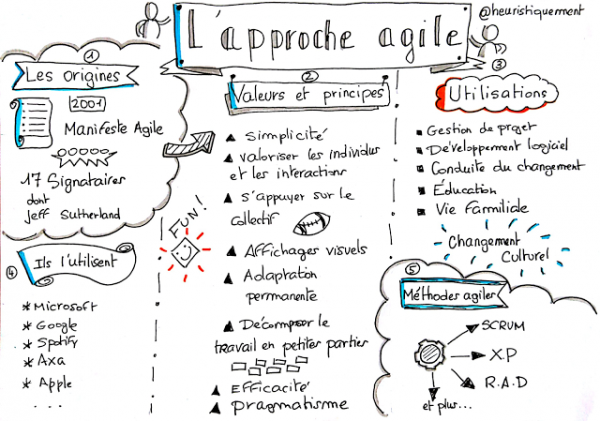 L'approche agile
@heuristiquement
①
Les origines
2001
Manifeste Agile
17 Signataires
dont
Jeff Sutherland
②
Valeurs et principes
Simplicité
Valoriser les individus
et les interactions
S'appuyer sur le
collectif
Affichages visuels
Adaptation
permanente
Décomposer le
travail en petites parties
Efficacité
Pragmatisme
FUN!
③
Utilisations
Gestion de projet
Développement logiciel
Conduite du changement
Éducation
Vie Familiale
Changement
Culturel
④
Ils l'utilisent
Microsoft
Google
Spotify
Axa
Apple
...
⑤
Méthodes agiles
SCRUM
X.P
R.A.D
et plus...